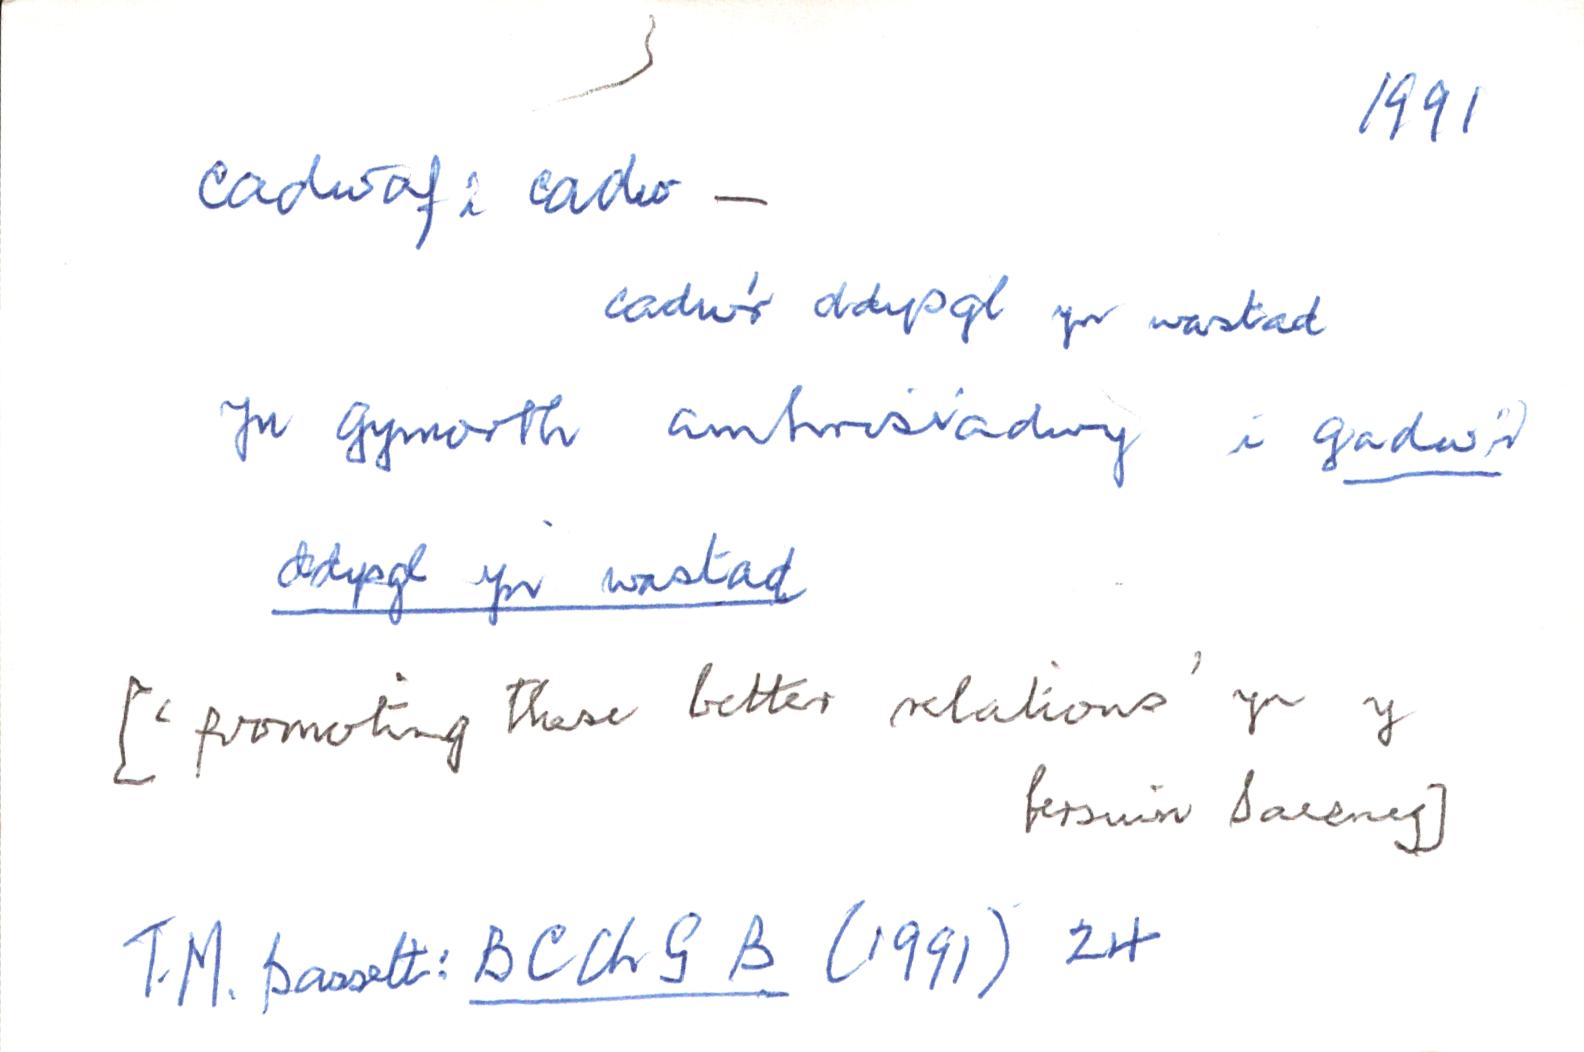 1991
cadwaf: cadw —
cadw'r ddysgl yn wastad
Yn gymorth amhrisiadwy i gadw'r
ddysgl yn wastad
['promoting these better relations' yn y
fersiwn Saesneg]
T.M. Bassett: BCChGB (1991) 24